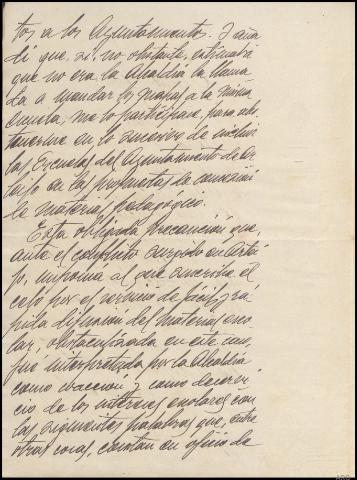 tos a los Ayuntamientos. Y aña
dí que, si, no obstante, estimaba
que no era la Alcaldía la llama
da a mandar los mapas a la misma
Escuela, me lo participase, para abs
tenerme en lo sucesivo de incluir
las Escuelas del Ayuntamiento de Ar
tajo en las propuestas de concesión
de material pedagógico.
Esta obligada precaución que,
ante el conflicto surgido en Arta
jo, imponía al que suscribe el
celo por el servicio de fácil y rá
pida difusión del material esco
lar, obstaculizada en este caso,
fué interpretada por la Alcaldía
como coacción y como desprecio
de los intereses escolares con
las siguientes palabras que, entre
otras cosas, constan en oficio de